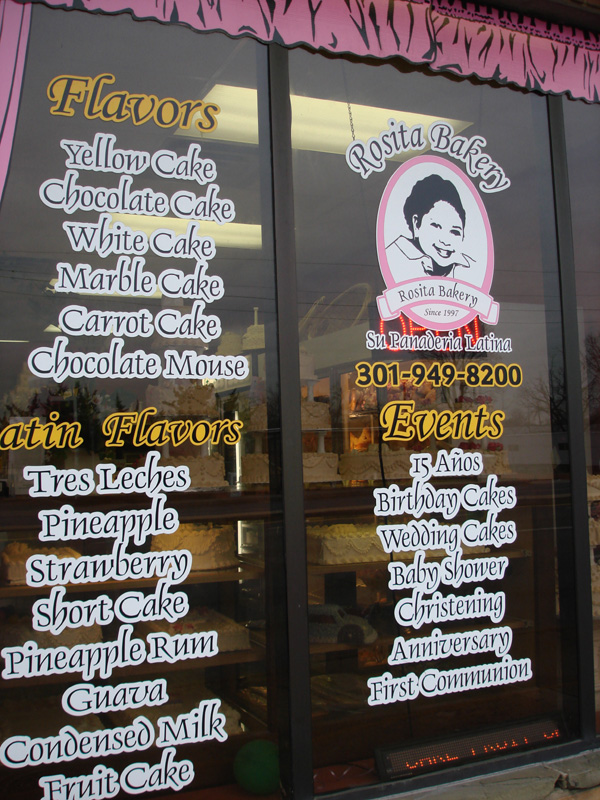 Flavors
Yellow Cake
Chocolate Cake
White Cake
Marble Cake
Carrot Cake
Chocolate Mouse
atin Flavors
Tres Leches
Pineapple
Strawberry
Short Cake
Pineapple Rum
Guava
Condensed Milk
Fruit Cake
Rosita Bakery
Rosita Bakery
Since 1997
Su Panaderia Latina
301-949-8200
Events
15 Años
Birthday Cakes
Wedding Cakes
Baby Shower
Christening
Anniversary
First Communion